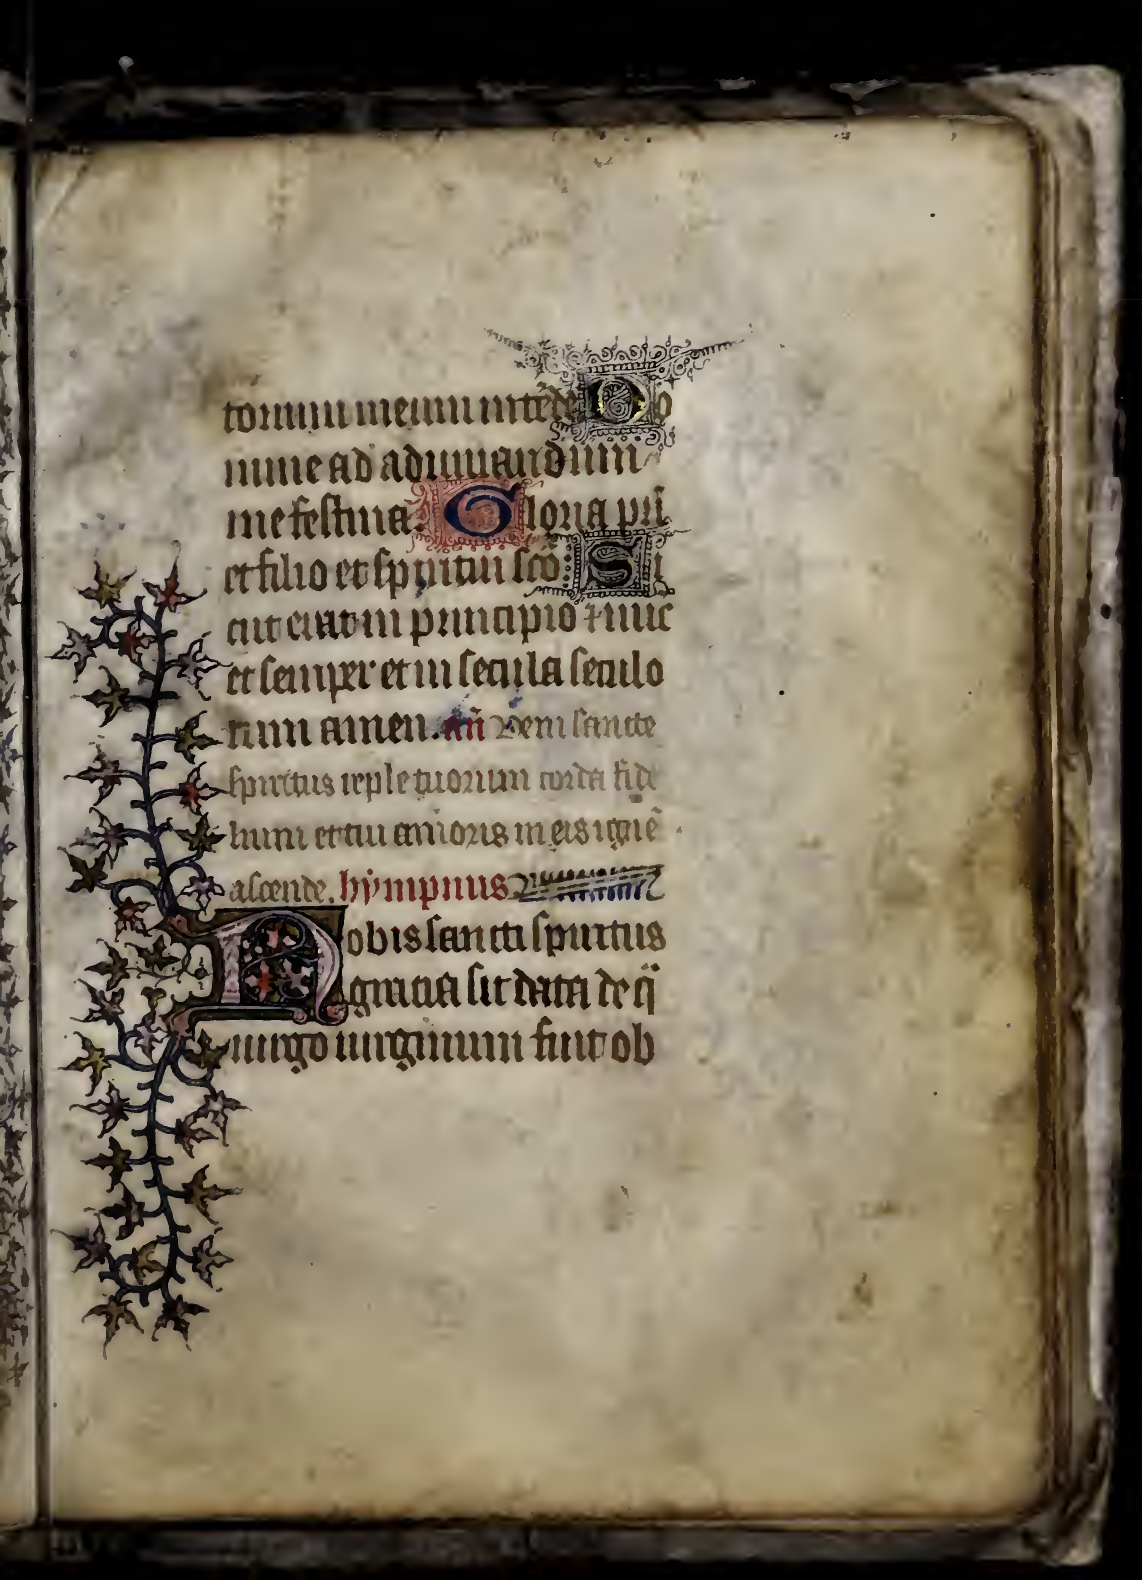 torium meum intēde Do
mine ad adiuuandum
me festina. Gloria pri̅
et filio et spiritui scō: Si
cut erat in principio ⁊ nūc
et semper et in secula seculo
rum amen. an̄ Veni sancte
spiritus reple tuorum corda fide
lium et tui amoris in eis ignē
ascende. hẏmpnus
Nobis sancti spiritus
gracia sit data de q̄
uirgo uirginum fuit ob